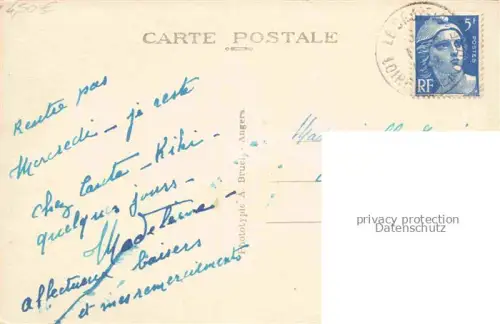 4,50€
CARTE POSTALE
5f
POSTES
RF
Rentre pas
Mercredi - je reste
chez tante - Kiki -
quelques jours -
Madeleine -
affectueux baisers
et mes remerciements
Phototypie A. Bruel, Angers
privacy protection
Datenschutz